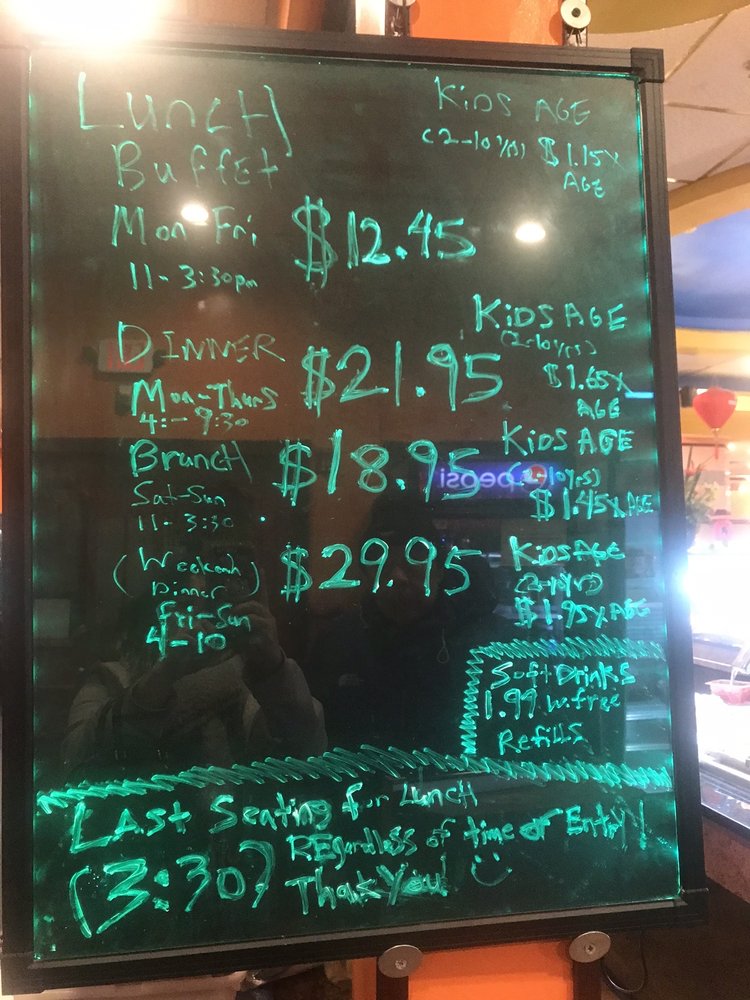 Lunch
Buffet
Mon-Fri
11-3:30pm
$12.45
Kids AGE
(2-10yrs) $1.15x
AGE
DINNER
Mon-Thurs
4:-9:30
$21.95
KiDS AGE
(2-10yrs)
$1.65x
AGE
Brunch
Sat-Sun
11-3:30
$18.95
KiDS AGE
(2-10yrs)
$1.45x AGE
pepsi
(Weekend
Dinner)
Fri-Sun
4-10
$29.95
KiDS AGE
$1.95x AGE
Soft Drinks
1.99 w. free
Refills
LAst Seating for Lunch
(3:30) REgardless of time of Entry!
Thank You!